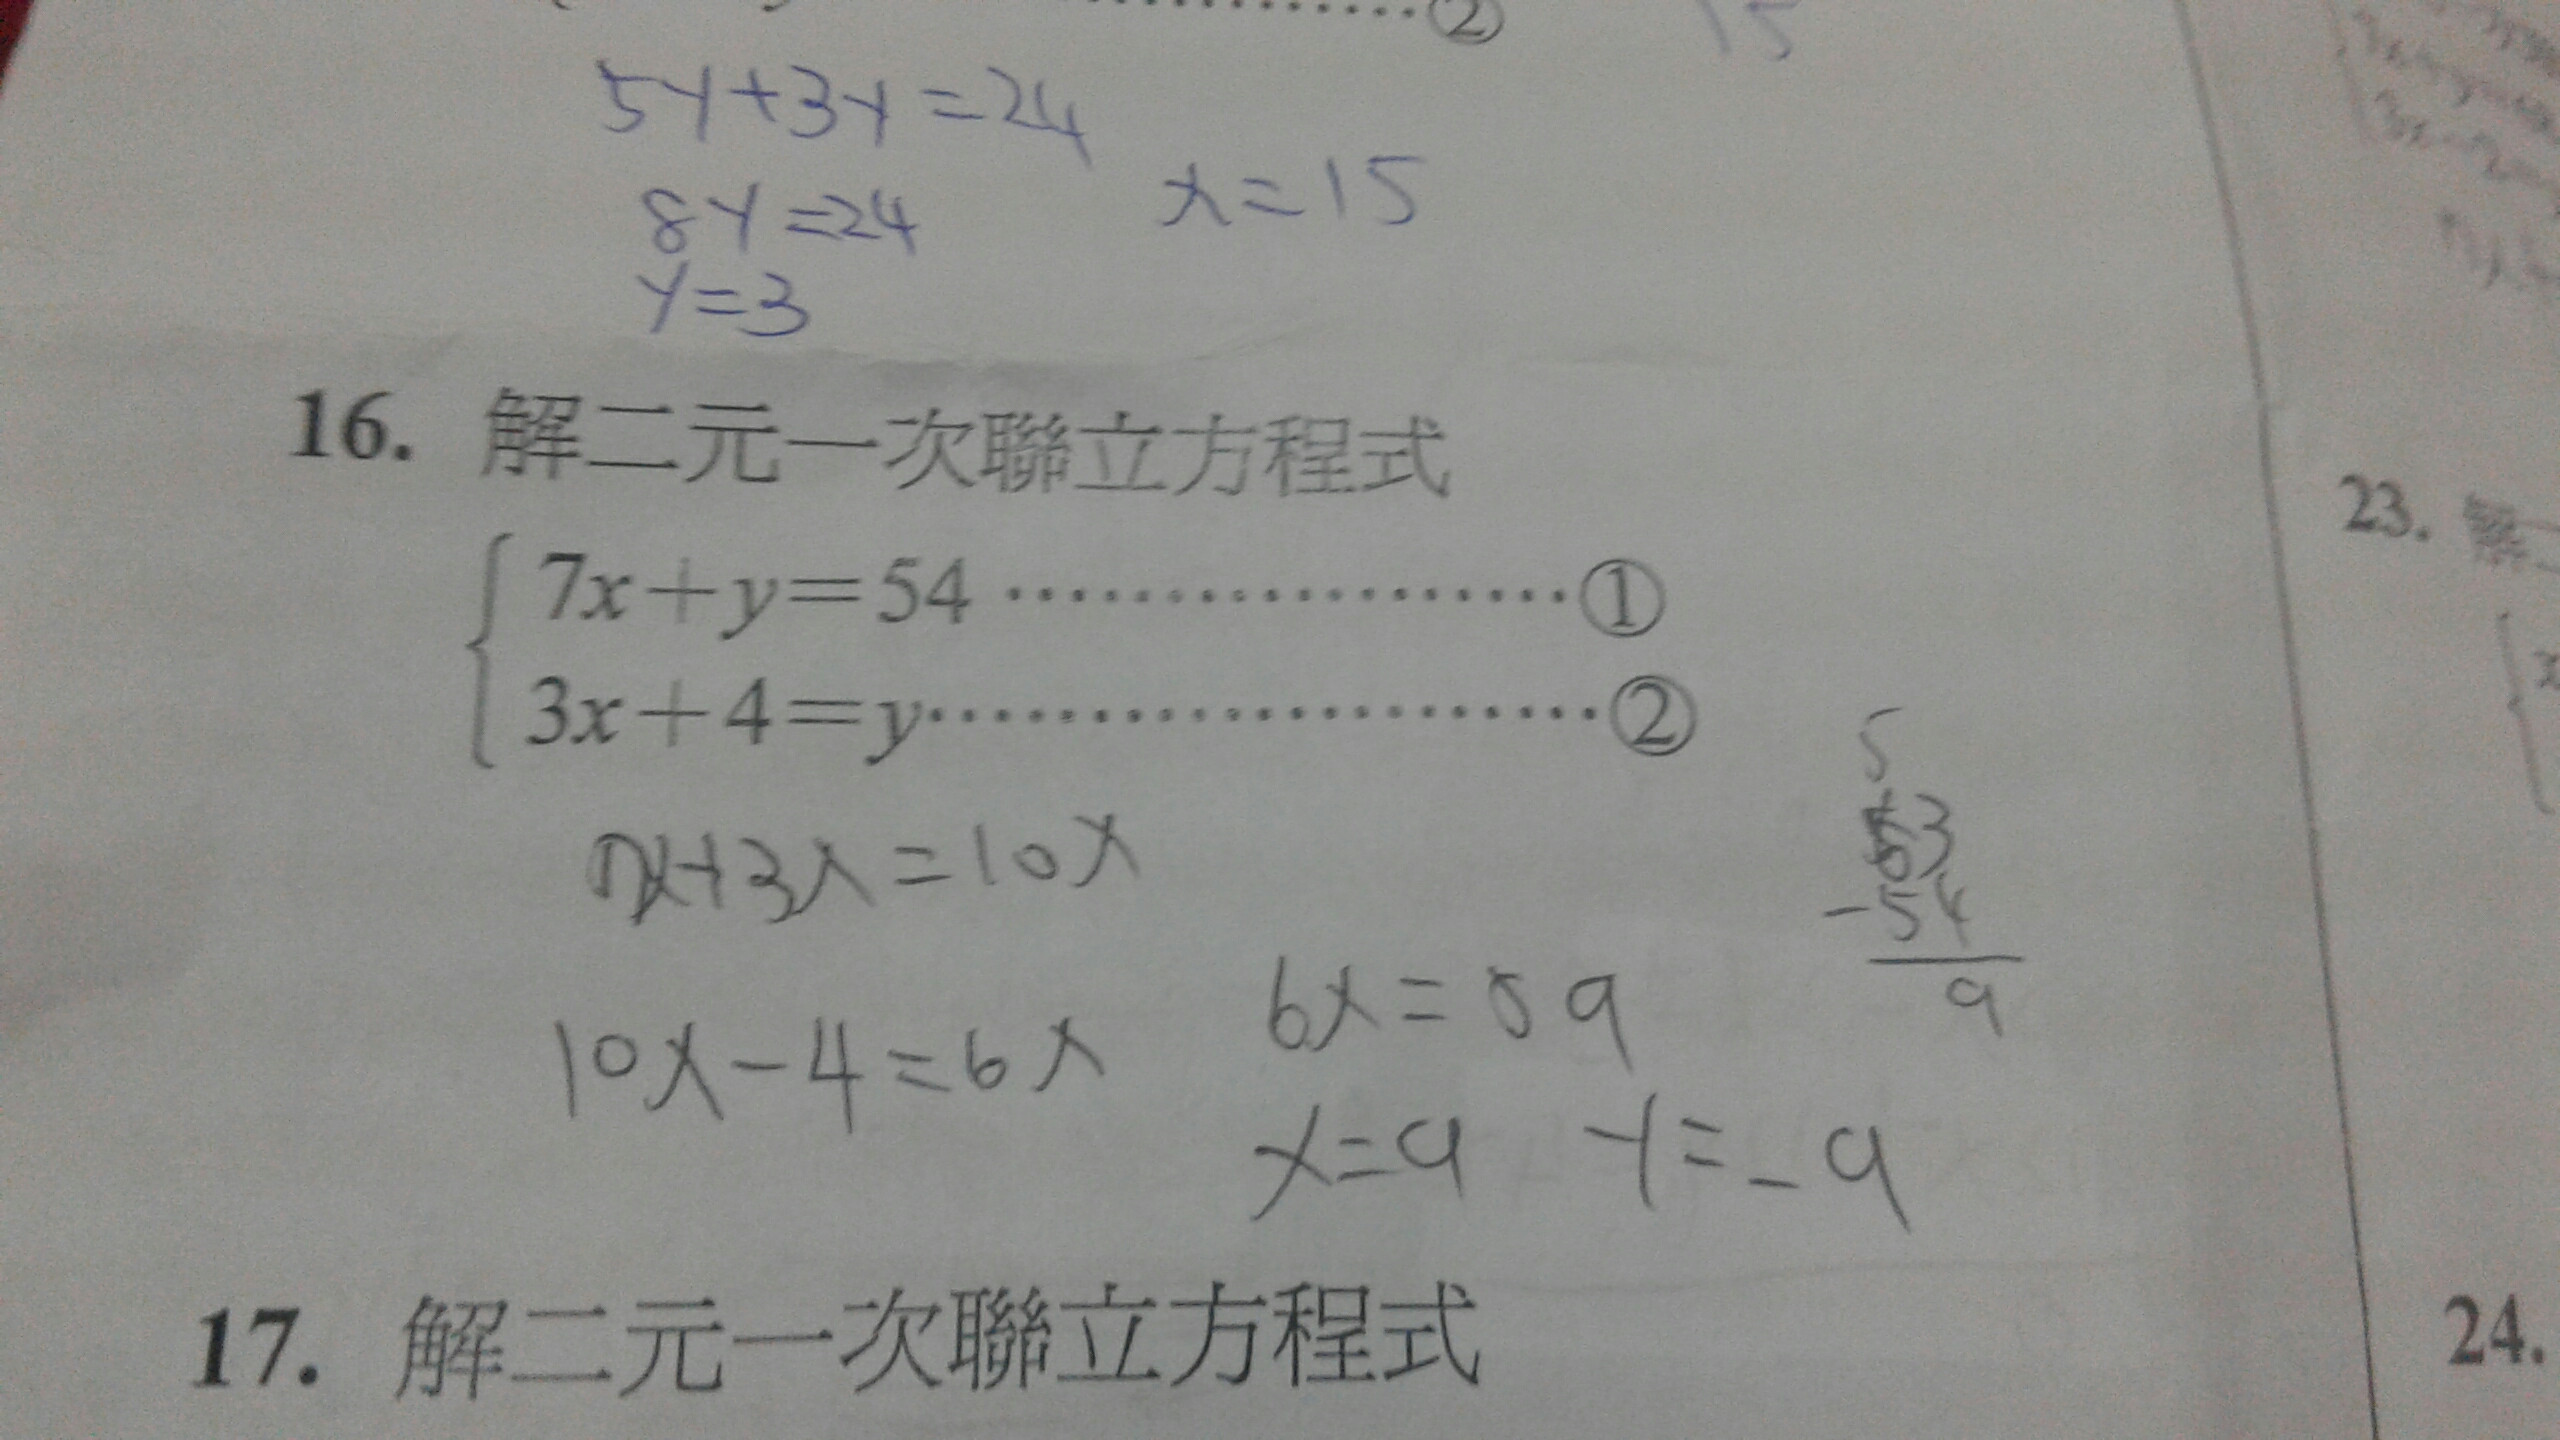 ②
15
5y+3y=24
8y=24
x=15
y=3
16. 解二元一次聯立方程式
7x+y=54 ………………①
3x+4=y………………②
7x+3x=10x
10x-4=6x
5
63
-54
9
6x=59
x=9 y=-9
17. 解二元一次聯立方程式
23. 解二
24.